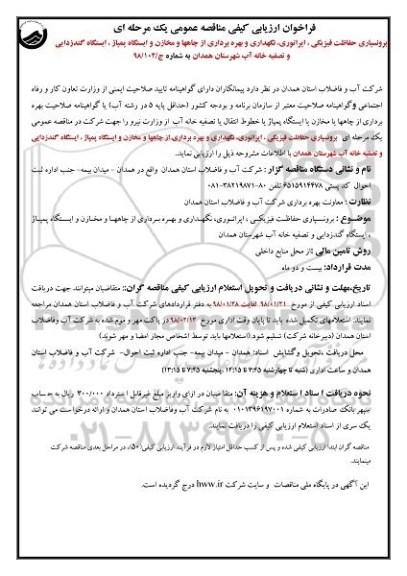 فراخوان ارزیابی کیفی مناقصه عمومی یک مرحله ای
برونسپاری حفاظت فیزیکی ، اپراتوری، نگهداری و بهره برداری از چاهها و مخازن و ایستگاه پمپاژ ، ایستگاه گندزدایی
و تصفیه خانه آب شهرستان همدان به شماره ج/۹۸/۱۰۲
شرکت آب و فاضلاب استان همدان در نظر دارد پیمانکاران دارای گواهینامه تایید صلاحیت ایمنی از وزارت تعاون کار و رفاه
اجتماعی وگواهینامه صلاحیت معتبر از سازمان برنامه و بودجه کشور (حداقل پایه ۵ در رشته آب) یا گواهینامه صلاحیت بهره
برداری از چاهها یا مخازن یا ایستگاه پمپاژ یا خطوط انتقال یا تصفیه خانه آب از وزارت نیرو را جهت شرکت در مناقصه عمومی
یک مرحله ای برونسپاری حفاظت فیزیکی ، اپراتوری، نگهداری و بهره برداری از چاهها و مخازن و ایستگاه پمپاژ ، ایستگاه گندزدایی و
تصفیه خانه آب شهرستان همدان با اطلاعات مشروحه ذیل را ارزیابی نماید.
نام و نشانی دستگاه مناقصه گزار : شرکت آب و فاضلاب استان همدان واقع در همدان - میدان بیمه- جنب اداره ثبت
احوال کد پستی ۶۵۱۵۹۱۴۴۷۸ تلفن ۸۰-۳۸۲۱۹۸۷۱-۰۸۱
نظارت : معاونت بهره برداری شرکت آب و فاضلاب استان همدان
موضوع : برونسپاری حفاظت فیزیکی ، اپراتوری، نگهداری و بهره برداری از چاهها و مخازن و ایستگاه پمپاژ
، ایستگاه گندزدایی و تصفیه خانه آب شهرستان همدان
روش تامین مالی : از محل منابع داخلی
مدت قرارداد: بیست و دو ماه
تاریخ،مهلت و نشانی دریافت و تحویل استعلام ارزیابی کیفی مناقصه گران:: متقاضیان میتوانند جهت دریافت
اسناد ارزیابی کیفی از مورخ ۹۸/۰۱/۲۱ لغایت ۹۸/۰۱/۲۸ به دفتر قراردادهای شرکت آب و فاضلاب استان همدان مراجعه
نمایند. استعلامهای تکمیل شده باید تا پایان وقت اداری مورخ ۹۸/۰۲/۱۲ در پاکت مهر و موم شده به شرکت آب وفاضلاب
استان همدان (دبیرخانه شرکت) تسلیم شود.(استعلامها باید توسط اشخاص مجاز امضا و مهر شوند)
محل دریافت ،تحویل وگشایش اسناد: همدان - میدان بیمه- جنب اداره ثبت احوال- شرکت آب و فاضلاب استان
همدان و ساعات اداری (شنبه تا چهارشنبه ۷:۴۵ تا ۱۴:۱۵ ، پنجشنبه ۷:۴۵ تا ۱۲:۱۵)
نحوه دریافت اسناد استعلام و هزینه آن: متقاضیان در ازای واریز مبلغ غیرقابل استرداد ۳۰۰/۰۰۰ ریال به حساب
سپهر بانک صادرات به شماره ۰۱۰۱۳۹۶۱۹۷۰۰۱ به نام شرکت آب وفاضلاب استان همدان و ارائه درخواست می توانند
یک سری از اسناد استعلام ارزیابی کیفی را دریافت نمایند.
مناقصه گران ابتدا ارزیابی کیفی شده و پس از کسب حداقل امتیاز لازم در فرآیند ارزیابی کیفی(۵۰)، در مراحل بعدی مناقصه شرکت
مینمایند.
این آگهی در پایگاه ملی مناقصات و سایت شرکت hww.ir درج گردیده است.
۰۲۱-۸۸۳۴۹۶۷۰-۵